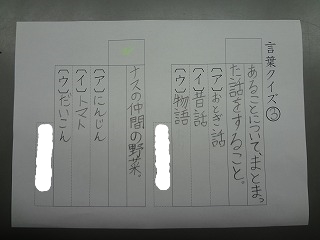 言葉クイズ③
あることについて、まとまっ
た話をすること。
〔ア〕おとぎ話
〔イ〕昔話
〔ウ〕物語
ナスの仲間の野菜。
〔ア〕にんじん
〔イ〕トマト
〔ウ〕だいこん